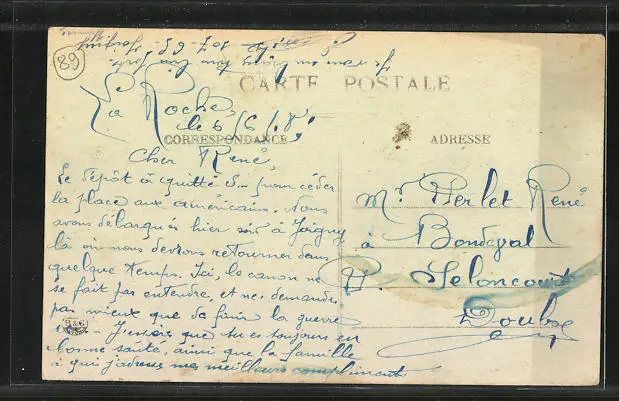 89
CARTE POSTALE
La Roche,
le 6/6/18
CORRESPONDANCE
ADRESSE
Cher René,
Le dépôt a quitté S... pour céder
la place aux américains. Nous
avons débarqués hier soir à Joigny
là où nous devrons retourner dans
quelque temps. Ici, le canon ne
se fait pas entendre, et ne demande
pas mieux que de finir la guerre
B&G
J'espère que tu es toujours en
bonne santé, ainsi que la famille
à qui j'adresse mes meilleurs compliments
Mr Perlet René
à Bondeval
P. Seloncourt
Doubs